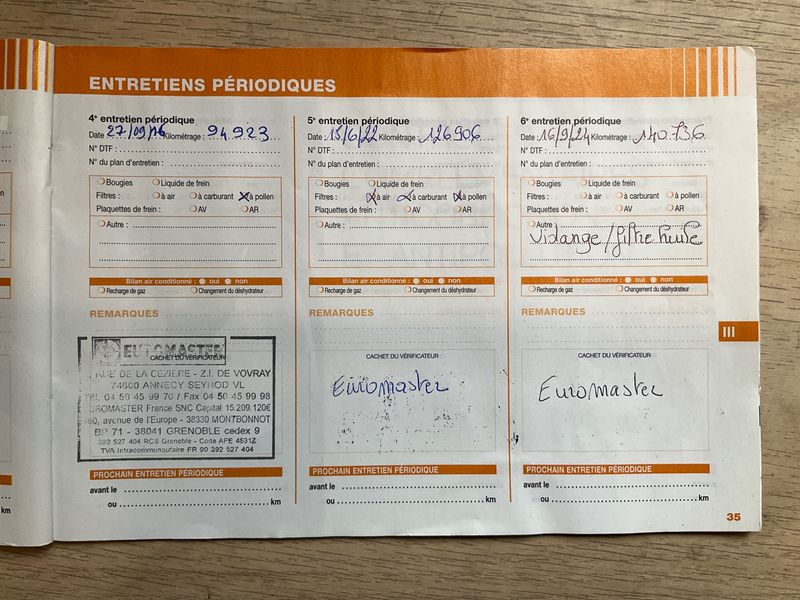 ENTRETIENS PÉRIODIQUES
4e entretien périodique
Date 27/09/16 Kilométrage : 94923
N° DTF :
N° du plan d'entretien :
Bougies Liquide de frein
Filtres : à air à carburant à pollen
Plaquettes de frein : AV AR
Autre :
Bilan air conditionné : oui non
Recharge de gaz Changement du déshydrateur
REMARQUES
EUROMASTER
CACHET DU VÉRIFICATEUR
RUE DE LA CEZIERE - Z.I. DE VOVRAY
74600 ANNECY SEYNOD VL
Tél. 04 50 45 99 70 / Fax 04 50 45 99 98
EUROMASTER France SNC Capital 15.209.120€
180, avenue de l'Europe - 38330 MONTBONNOT
BP 71 - 38041 GRENOBLE cedex 9
392 527 404 RCS Grenoble - Code APE 4531Z
TVA Intracommunautaire FR 90 392 527 404
PROCHAIN ENTRETIEN PÉRIODIQUE
avant le
ou km
5e entretien périodique
Date : 15/6/22 Kilométrage : 126906
N° DTF :
N° du plan d'entretien :
Bougies Liquide de frein
Filtres : à air à carburant à pollen
Plaquettes de frein : AV AR
Autre :
Bilan air conditionné : oui non
Recharge de gaz Changement du déshydrateur
REMARQUES
CACHET DU VÉRIFICATEUR
Euromaster
PROCHAIN ENTRETIEN PÉRIODIQUE
avant le
ou km
6e entretien périodique
Date : 16/9/24 Kilométrage : 140.736
N° DTF :
N° du plan d'entretien :
Bougies Liquide de frein
Filtres : à air à carburant à pollen
Plaquettes de frein : AV AR
Autre :
Vidange/filtre huile
Bilan air conditionné : oui non
Recharge de gaz Changement du déshydrateur
REMARQUES
CACHET DU VÉRIFICATEUR
Euromaster
PROCHAIN ENTRETIEN PÉRIODIQUE
avant le
ou km
III
35